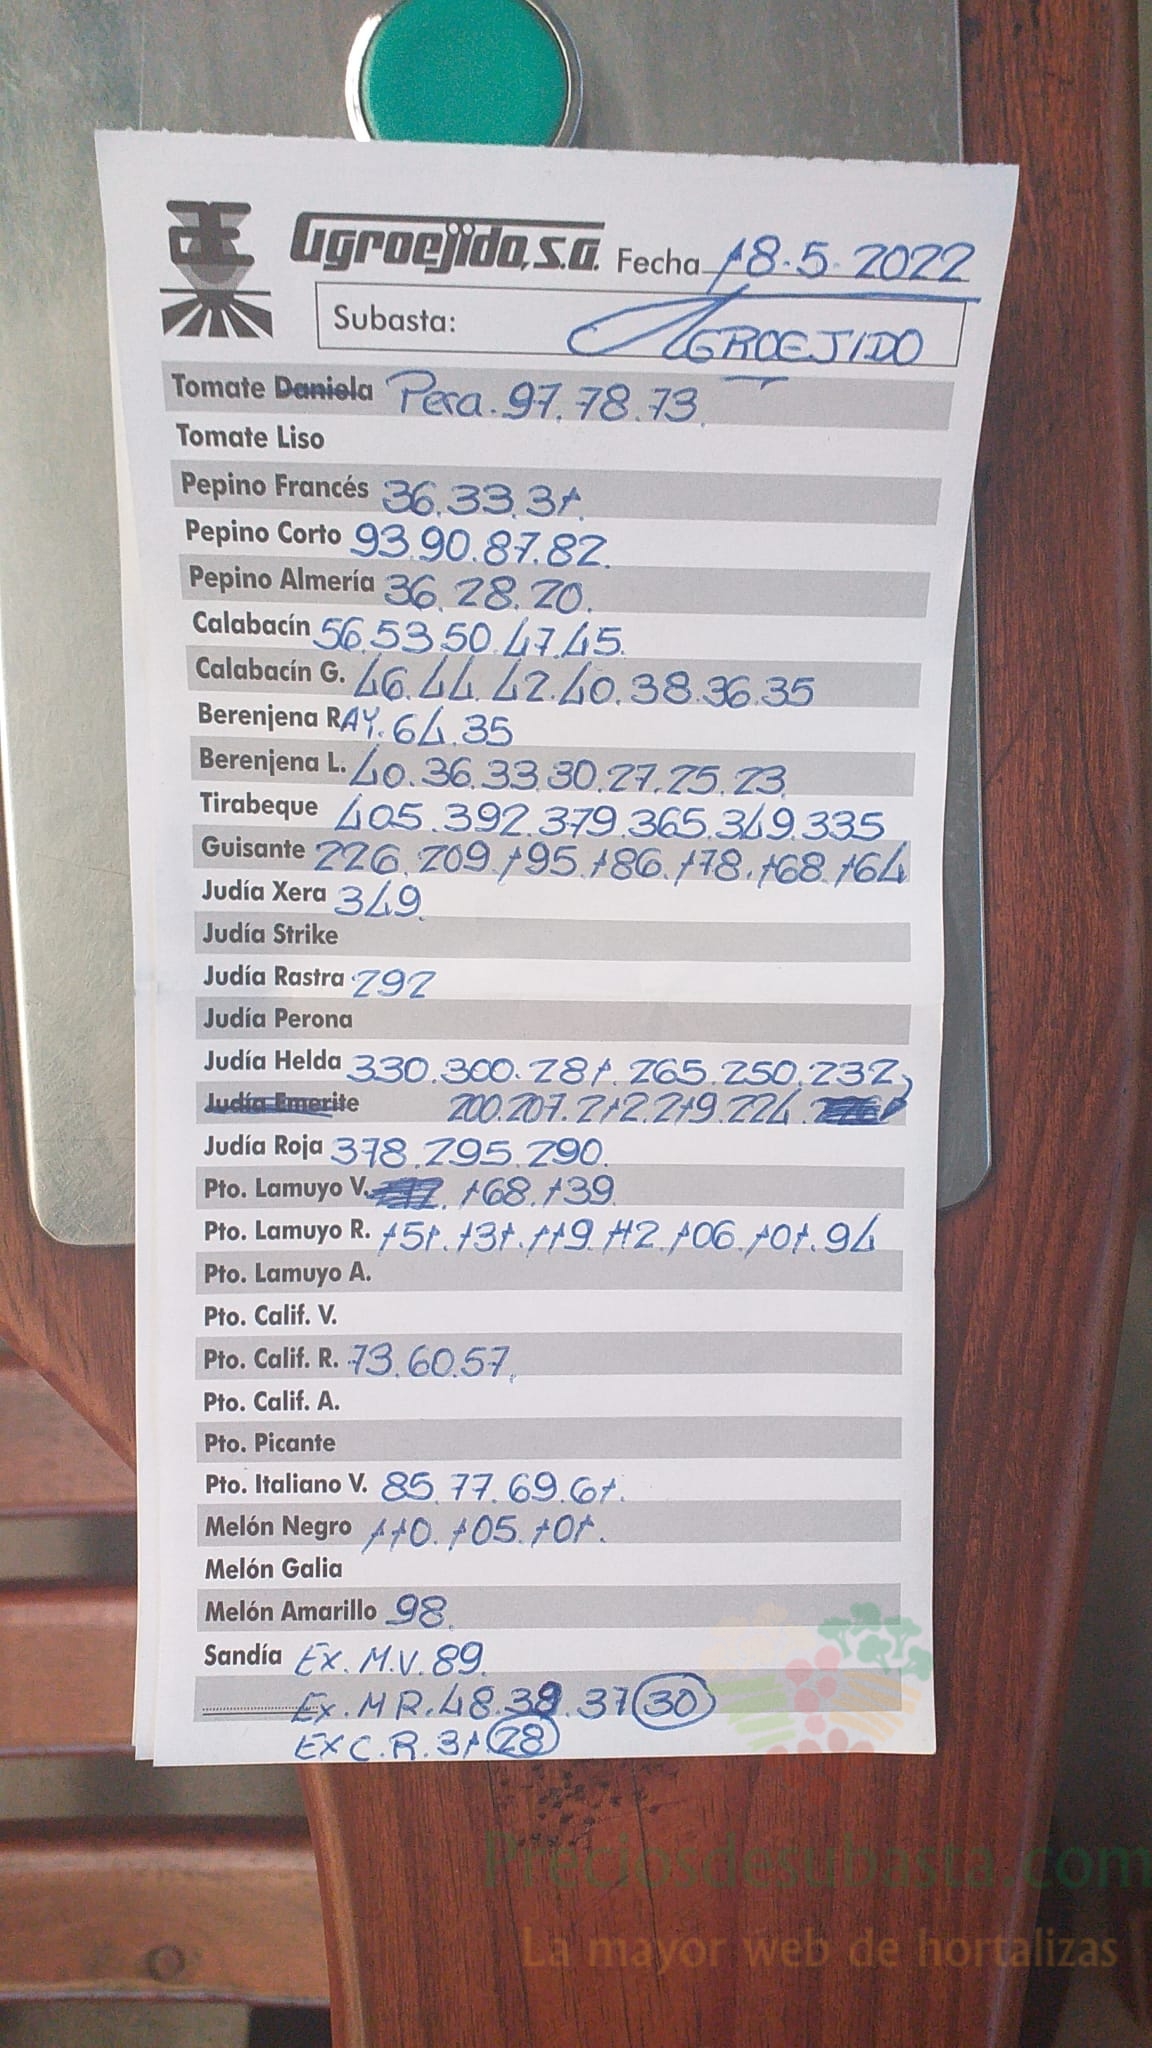 Agroejido, s.a. Fecha 18.5.2022
Subasta: AGROEJIDO
Tomate Daniela Pera. 97. 78. 73.
Tomate Liso
Pepino Francés 36. 33. 31.
Pepino Corto 93. 90. 87. 82.
Pepino Almería 36. 28. 20.
Calabacín 56. 53 50. 47. 45.
Calabacín G. 46. 44. 42. 40. 38. 36. 35
Berenjena RAY. 64. 35
Berenjena L. 40. 36. 33 30. 27. 25. 23.
Tirabeque 405. 392. 379. 365. 349. 335
Guisante 226. 209. 195. 186. 178. 168. 164
Judía Xera 349.
Judía Strike
Judía Rastra 292
Judía Perona
Judía Helda 330. 300. 281. 265. 250. 232
Judía Emerite 200. 207. 212. 219. 224.
Judía Roja 378. 295. 290.
Pto. Lamuyo V. 168. 139
Pto. Lamuyo R. 151. 131. 119. 112. 106. 101. 94
Pto. Lamuyo A.
Pto. Calif. V.
Pto. Calif. R. 73. 60. 57.
Pto. Calif. A.
Pto. Picante
Pto. Italiano V. 85. 77. 69. 61.
Melón Negro 110. 105. 101.
Melón Galia
Melón Amarillo 98.
Sandía Ex. M.V. 89.
Ex. M R. 48. 38. 37 30
EX C. R. 31 28
Preciosdesubasta.com
La mayor web de hortalizas